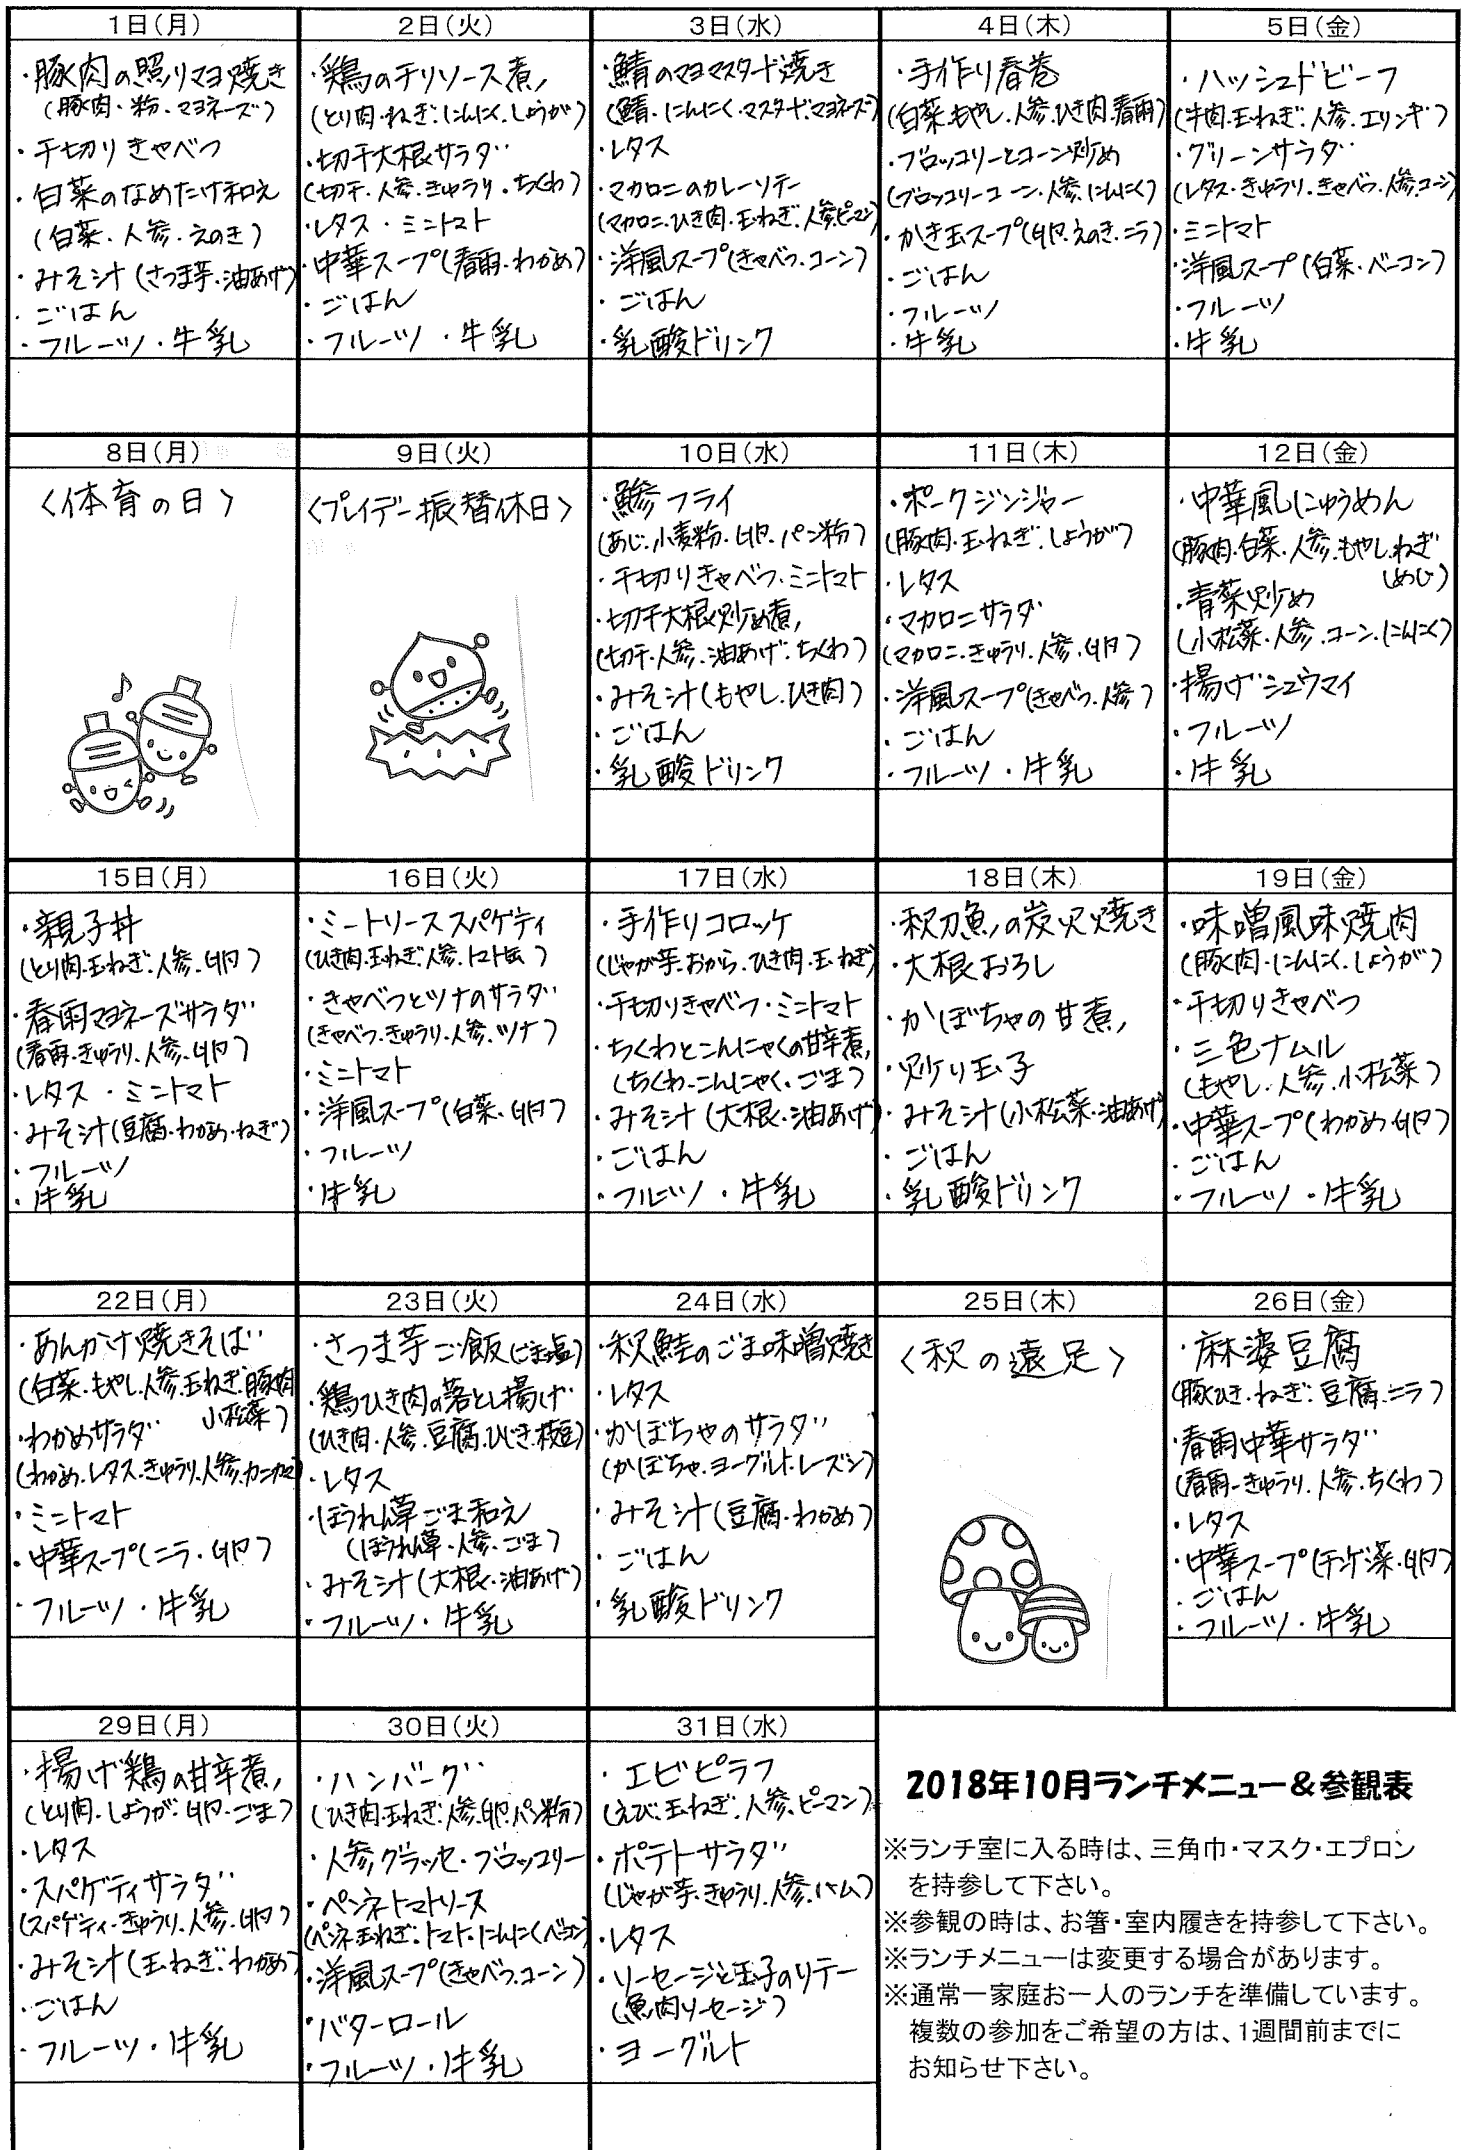 1日(月)
・豚肉の照りマヨ焼き
(豚肉・粉・マヨネーズ)
・千切りきゃべつ
・白菜のなめたけ和え
(白菜・人参・えのき)
・みそ汁(さつま芋・油あげ)
・ごはん
・フルーツ・牛乳
2日(火)
・鶏のチリソース煮
(とり肉・ねぎ・にんにく・しょうが)
・切干大根サラダ
(切干・人参・きゅうり・ちくわ)
・レタス・ミニトマト
・中華スープ(春雨・わかめ)
・ごはん
・フルーツ・牛乳
3日(水)
・鯖のマヨマスタード焼き
(鯖・にんにく・マスタード・マヨネーズ)
・レタス
・マカロニのカレーソテー
(マカロニ・ひき肉・玉ねぎ・人参・ピーマン)
・洋風スープ(きゃべつ・コーン)
・ごはん
・乳酸ドリンク
4日(木)
・手作り春巻
(白菜・もやし・人参・ひき肉・春雨)
・ブロッコリーとコーン炒め
(ブロッコリー・コーン・人参・にんにく)
・かき玉スープ(卵・えのき・ニラ)
・ごはん
・フルーツ
・牛乳
5日(金)
・ハッシュドビーフ
(牛肉・玉ねぎ・人参・エリンギ)
・グリーンサラダ
(レタス・きゅうり・きゃべつ・人参・コーン)
・ミニトマト
・洋風スープ(白菜・ベーコン)
・フルーツ
・牛乳
8日(月)
〈体育の日〉
9日(火)
〈プレイデー振替休日〉
10日(水)
・鯵フライ
(あじ・小麦粉・卵・パン粉)
・千切りきゃべつ・ミニトマト
・切干大根炒め煮
(切干・人参・油あげ・ちくわ)
・みそ汁(もやし・ひき肉)
・ごはん
・乳酸ドリンク
11日(木)
・ポークジンジャー
(豚肉・玉ねぎ・しょうが)
・レタス
・マカロニサラダ
(マカロニ・きゅうり・人参・卵)
・洋風スープ(きゃべつ・人参)
・ごはん
・フルーツ・牛乳
12日(金)
・中華風にゅうめん
(豚肉・白菜・人参・もやし・ねぎ
しめじ)
・青菜炒め
(小松菜・人参・コーン・にんにく)
・揚げシュウマイ
・フルーツ
・牛乳
15日(月)
・親子丼
(とり肉・玉ねぎ・人参・卵)
・春雨マヨネーズサラダ
(春雨・きゅうり・人参・卵)
・レタス・ミニトマト
・みそ汁(豆腐・わかめ・ねぎ)
・フルーツ
・牛乳
16日(火)
・ミートソーススパゲティ
(ひき肉・玉ねぎ・人参・トマト缶)
・きゃべつとツナのサラダ
(きゃべつ・きゅうり・人参・ツナ)
・ミニトマト
・洋風スープ(白菜・卵)
・フルーツ
・牛乳
17日(水)
・手作りコロッケ
(じゃが芋・おから・ひき肉・玉ねぎ)
・千切りきゃべつ・ミニトマト
・ちくわとこんにゃくの甘辛煮
(ちくわ・こんにゃく・ごま)
・みそ汁(大根・油あげ)
・ごはん
・フルーツ・牛乳
18日(木)
・秋刀魚の炭火焼き
・大根おろし
・かぼちゃの甘煮
・炒り玉子
・みそ汁(小松菜・油あげ)
・ごはん
・乳酸ドリンク
19日(金)
・味噌風味焼肉
(豚肉・にんにく・しょうが)
・千切りきゃべつ
・三色ナムル
(もやし・人参・小松菜)
・中華スープ(わかめ・卵)
・ごはん
・フルーツ・牛乳
22日(月)
・あんかけ焼きそば
(白菜・もやし・人参・玉ねぎ・豚肉
小松菜)
・わかめサラダ
(わかめ・レタス・きゅうり・人参・カニカマ)
・ミニトマト
・中華スープ(ニラ・卵)
・フルーツ・牛乳
23日(火)
・さつま芋ご飯(ごま塩)
・鶏ひき肉の落とし揚げ
(ひき肉・人参・豆腐・ひじき・枝豆)
・レタス
・ほうれん草ごま和え
(ほうれん草・人参・ごま)
・みそ汁(大根・油あげ)
・フルーツ・牛乳
24日(水)
・秋鮭のごま味噌焼き
・レタス
・かぼちゃのサラダ
(かぼちゃ・ヨーグルト・レーズン)
・みそ汁(豆腐・わかめ)
・ごはん
・乳酸ドリンク
25日(木)
〈秋の遠足〉
26日(金)
・麻婆豆腐
(豚ひき・ねぎ・豆腐・ニラ)
・春雨中華サラダ
(春雨・きゅうり・人参・ちくわ)
・レタス
・中華スープ(チンゲン菜・卵)
・ごはん
・フルーツ・牛乳
29日(月)
・揚げ鶏の甘辛煮
(とり肉・しょうが・卵・ごま)
・レタス
・スパゲティサラダ
(スパゲティ・きゅうり・人参・卵)
・みそ汁(玉ねぎ・わかめ)
・ごはん
・フルーツ・牛乳
30日(火)
・ハンバーグ
(ひき肉・玉ねぎ・人参・卵・パン粉)
・人参グラッセ・ブロッコリー
・ペンネトマトソース
(ペンネ・玉ねぎ・トマト・にんにく・ベーコン)
・洋風スープ(きゃべつ・コーン)
・バターロール
・フルーツ・牛乳
31日(水)
・エビピラフ
(えび・玉ねぎ・人参・ピーマン)
・ポテトサラダ
(じゃが芋・きゅうり・人参・ハム)
・レタス
・ソーセージと玉子のソテー
(魚肉ソーセージ)
・ヨーグルト
2018年10月ランチメニュー＆参観表
※ランチ室に入る時は、三角巾・マスク・エプロン
を持参して下さい。
※参観の時は、お箸・室内履きを持参して下さい。
※ランチメニューは変更する場合があります。
※通常一家庭お一人のランチを準備しています。
複数の参加をご希望の方は、1週間前までに
お知らせ下さい。